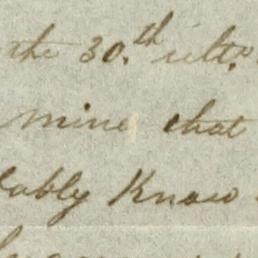 the 30.th ulto.
mine that
bably Know